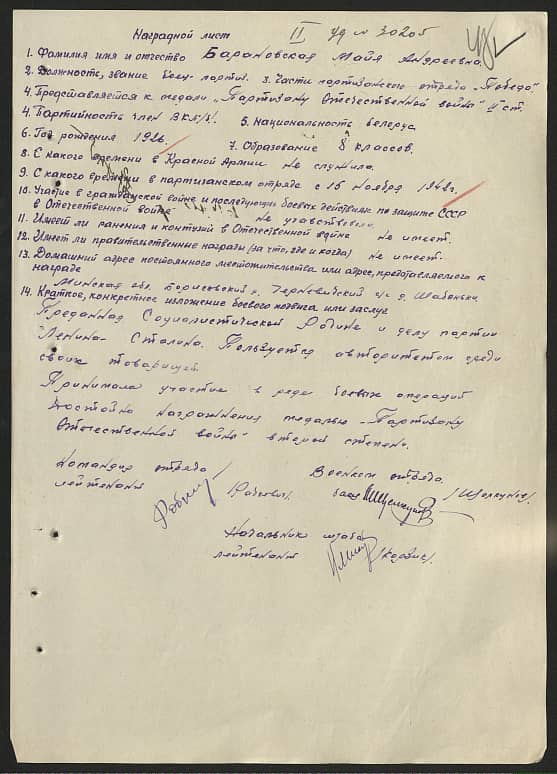 Наградной лист II уд № 30205
1. Фамилия имя и отчество Барановская Майя Андреевна.
2. Должность, звание боец-партиз. 3. Часть партизанского отряда „Победа"
4. Представляется к медали „Партизану Отечественной войны" II ст.
4. Партийность член ВЛКСМ. 5. Национальность белорус
6. Год рождения 1926. 7. Образование 8 классов.
8. С какого времени в Красной Армии не служила.
9. С какого времени в партизанском отряде с 15 ноября 1942г.
10. Участие в гражданской войне и последующих боевых действиях по защите СССР
в Отечественной войне не участвовала.
11. Имеет ли ранения и контузии в Отечественной войне не имеет.
12. Имеет ли правительственные награды (за что, где и когда) не имеет.
13. Домашний адрес постоянного местожительства или адрес, представляемого к
награде
Минская обл. Борисовский р. с/с д.
14. Краткое, конкретное изложение боевого подвига или заслуг
Преданная Социалистической Родине и делу партии
Ленина - Сталина. Пользуется авторитетом среди
своих товарищей.
Принимала участие в ряде боевых операций
Достойна награждения медалью „Партизану
Отечественной войны" второй степени.
Командир отряда Военком отряда
лейтенант
Начальник штаба
лейтенант